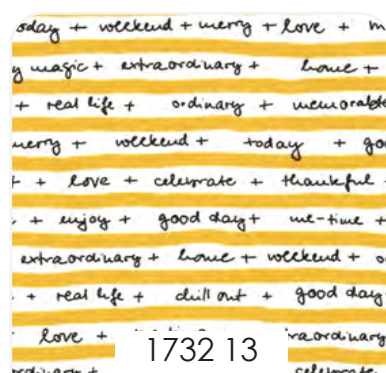 oday + weekend + merry + love + m
y magic + extraordinary + home +
+ real life + ordinary + memorable
merry + weekend + today + goo
+ + love + celebrate + thankful +
+ enjoy + good day + me-time +
extraordinary + home + weekend + o
+ real life + chill out + good day
love + raordinary
ordinary + celebrate
1732 13